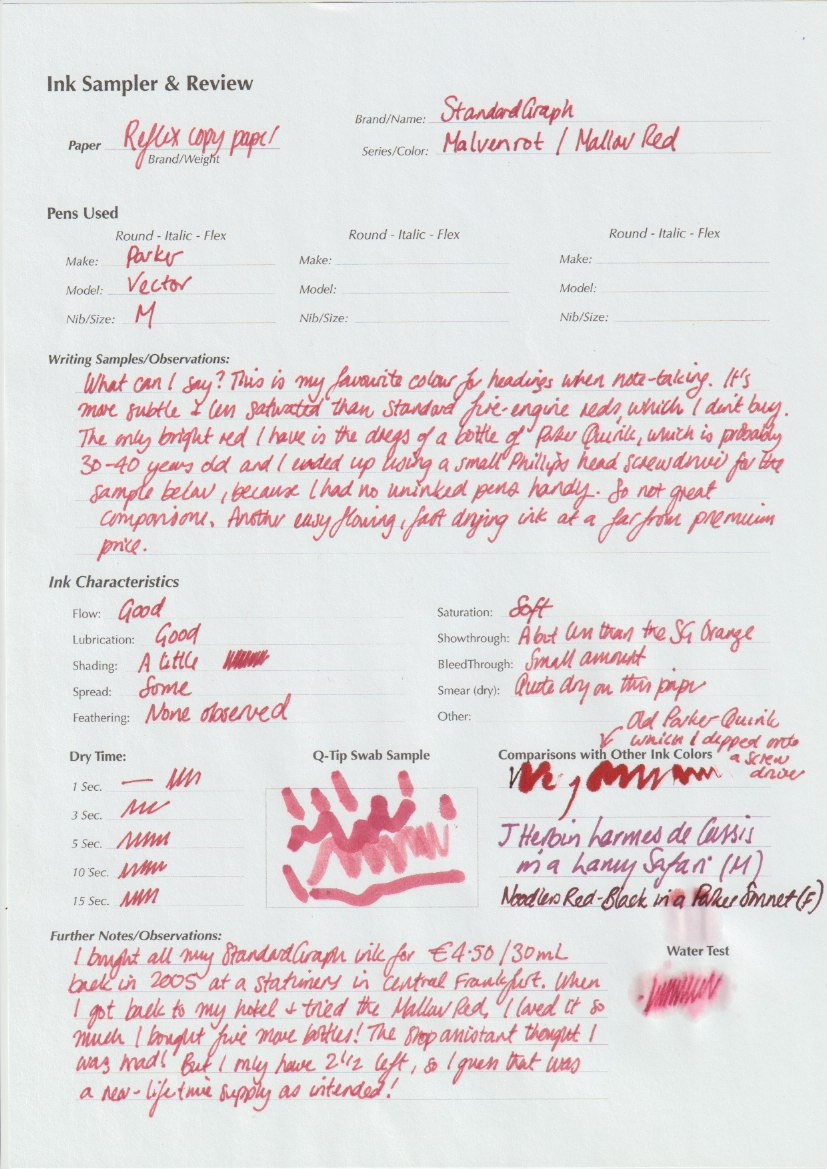 Ink Sampler & Review
Brand/Name: StandardGraph
Paper Reflex copy paper
Brand/Weight
Series/Color: Malvenrot / Mallow Red
Pens Used
Round - Italic - Flex Round - Italic - Flex Round - Italic - Flex
Make: Parker Make: Make:
Model: Vector Model: Model:
Nib/Size: M Nib/Size: Nib/Size:
Writing Samples/Observations:
What can I say? This is my favourite colour for headings when note-taking. It's
more subtle & less saturated than standard fire-engine reds, which I don't buy.
The only bright red I have is the dregs of a bottle of Parker Quink, which is probably
30-40 years old and I ended up using a small Phillips head screwdriver for the
sample below, because I had no uninked pens handy. So not great
comparisons. Another easy flowing, fast drying ink at a far from premium
price.
Ink Characteristics
Flow: Good
Lubrication: Good
Shading: A little
Spread: Some
Feathering: None observed
Saturation: Soft
Showthrough: A bit less than the SG Orange
BleedThrough: Small amount
Smear (dry): Quite dry on this paper
Other:
Old Parker Quink
which I dipped onto
a screw
driver
Dry Time:
1 Sec.
3 Sec.
5 Sec.
10 Sec.
15 Sec.
Q-Tip Swab Sample
Comparisons with Other Ink Colors
J Herbin Larmes de Cassis
in a Lamy Safari (M)
Noodlers Red-Black in a Parker Sonnet (F)
Water Test
Further Notes/Observations:
I bought all my StandardGraph ink for €4.50/30mL
back in 2005 at a stationers in Central Frankfurt. When
I got back to my hotel & tried the Mallow Red, I loved it so
much I bought five more bottles! The shop assistant thought I
was mad! But I only have 2 1/2 left, so I guess that was
a near-lifetime supply as intended!